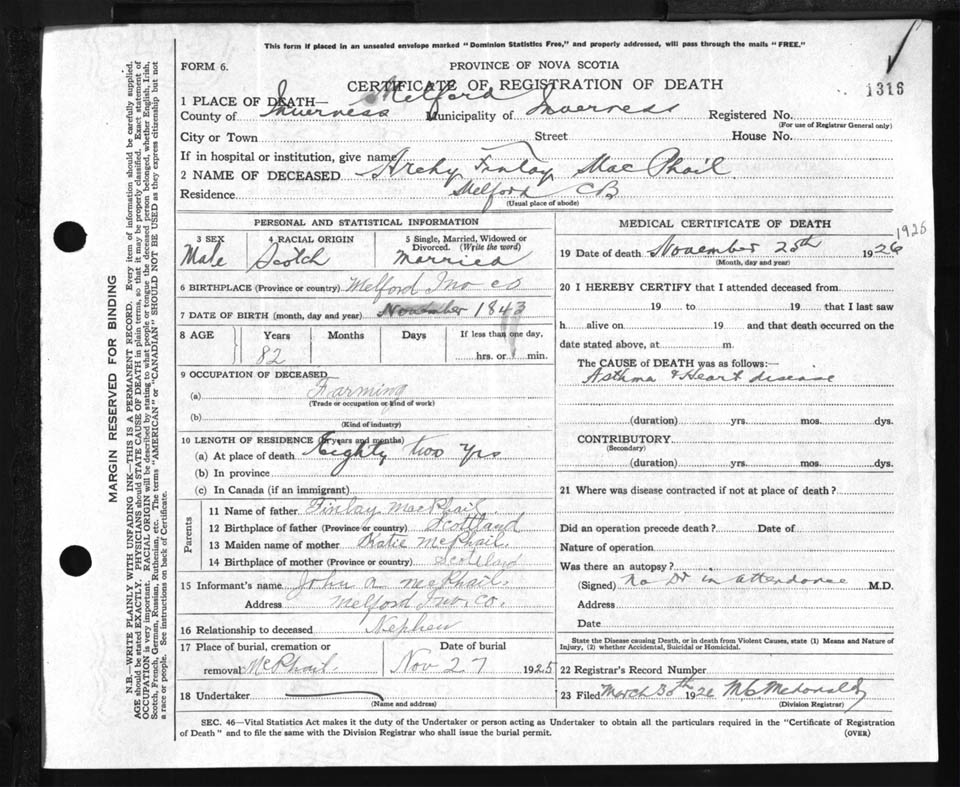 This form if placed in an unsealed envelope marked "Dominion Statistics Free," and properly addressed, will pass through the mails "FREE."
FORM 6.
PROVINCE OF NOVA SCOTIA
CERTIFICATE OF REGISTRATION OF DEATH
1316
1 PLACE OF DEATH— Melford
County of Inverness Municipality of Inverness Registered No.
(For use of Registrar General only)
City or Town Street House No.
If in hospital or institution, give name
2 NAME OF DECEASED Archy Finlay MacPhail
Residence Melford CB
(Usual place of abode)
PERSONAL AND STATISTICAL INFORMATION
3 SEX 4 RACIAL ORIGIN 5 Single, Married, Widowed or Divorced. (Write the word)
Male Scotch Married
6 BIRTHPLACE (Province or country) Melford Inv co
7 DATE OF BIRTH (month, day and year) November 1843
8 AGE Years Months Days If less than one day,
82 hrs. or min.
9 OCCUPATION OF DECEASED
(a) Farming
(Trade or occupation or kind of work)
(b)
(Kind of industry)
10 LENGTH OF RESIDENCE (in years and months)
(a) At place of death Eighty two Yrs
(b) In province
(c) In Canada (if an immigrant)
Parents
11 Name of father Finlay MacPhail
12 Birthplace of father (Province or country) Scottland
13 Maiden name of mother Katie McPhail.
14 Birthplace of mother (Province or country) Scotland
15 Informant's name John A McPhail.
Address Melford Inv. Co.
16 Relationship to deceased Nephew
17 Place of burial, cremation or removal Date of burial
McPhail. Nov 27 1925
18 Undertaker
(Name and address)
MEDICAL CERTIFICATE OF DEATH
1925
19 Date of death November 25th 1926
(Month, day and year)
20 I HEREBY CERTIFY that I attended deceased from
19 to 19 that I last saw
h alive on 19 and that death occurred on the
date stated above, at m.
The CAUSE of DEATH was as follows:
Asthma & Heart disease
(duration) yrs. mos. dys.
CONTRIBUTORY
(Secondary)
(duration) yrs. mos. dys.
21 Where was disease contracted if not at place of death?
Did an operation precede death? Date of
Nature of operation
Was there an autopsy?
(Signed) No Dr in attendance M.D.
Address
Date
State the Disease causing Death, or in death from Violent Causes, state (1) Means and Nature of Injury, (2) whether Accidental, Suicidal or Homicidal.
22 Registrar's Record Number
23 Filed March 30th 1926 McMcdonald
(Division Registrar)
SEC. 46—Vital Statistics Act makes it the duty of the Undertaker or person acting as Undertaker to obtain all the particulars required in the "Certificate of Registration
of Death" and to file the same with the Division Registrar who shall issue the burial permit.
(OVER)
MARGIN RESERVED FOR BINDING
N.B.—WRITE PLAINLY WITH UNFADING INK—THIS IS A PERMANENT RECORD. Every item of information should be carefully supplied.
AGE should be stated EXACTLY. PHYSICIANS should STATE CAUSE OF DEATH in plain terms, so that it may be properly classified. Exact statement of
OCCUPATION is very important. RACIAL ORIGIN will be described by stating to what people or tongue the deceased person belonged, whether English, Irish,
Scotch, French, German, Russian, Ruthenian, etc. The terms "AMERICAN" or "CANADIAN" SHOULD NOT BE USED as they express citizenship but not
a race or people. See instructions on back of Certificate.